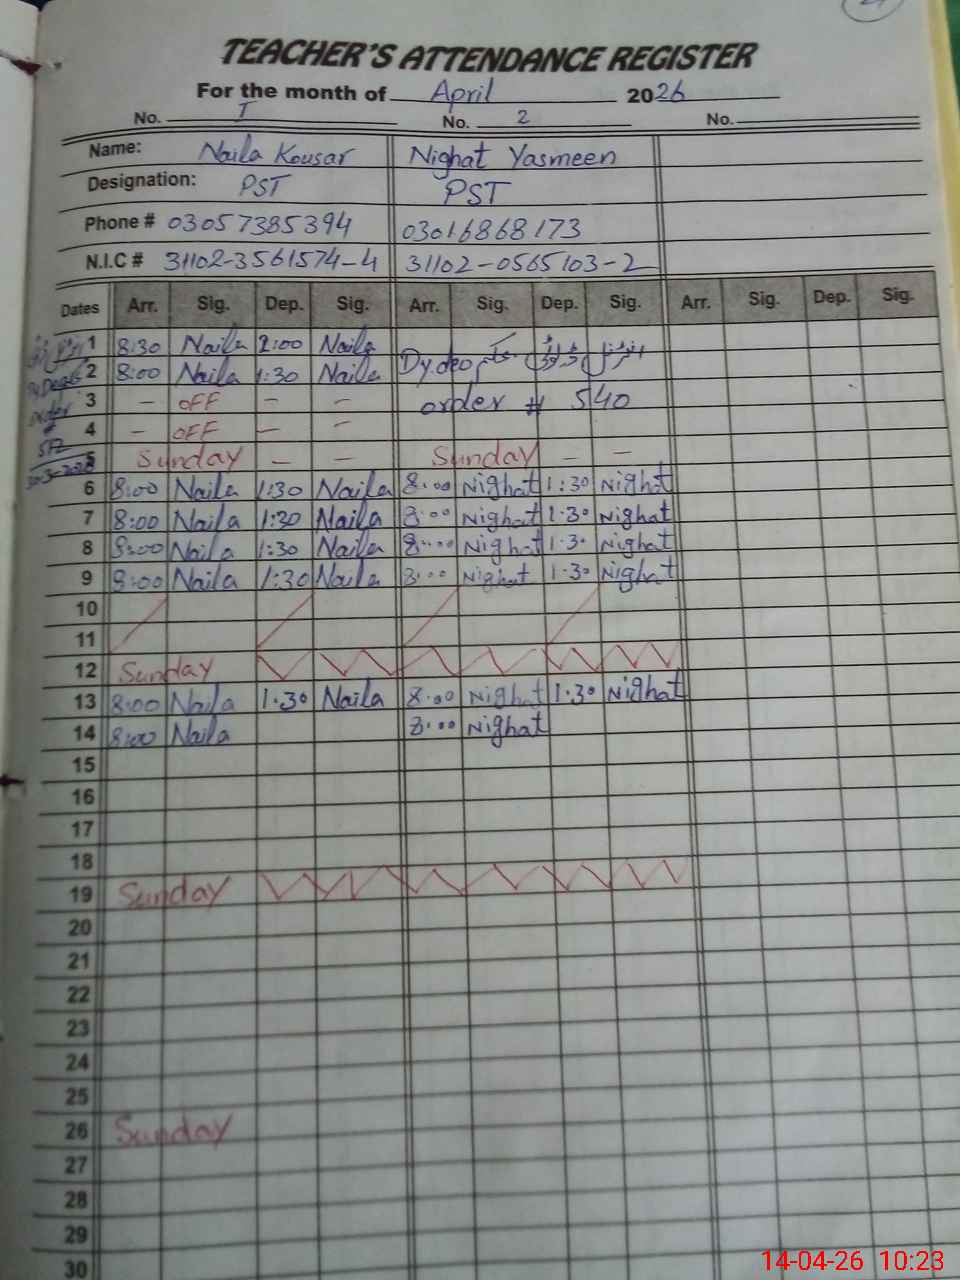 TEACHER'S ATTENDANCE REGISTER
For the month of April 2026
No. I No. 2 No.
Name: Naila Kousar Nighat Yasmeen
Designation: PST PST
Phone # 03057385394 03016868173
N.I.C # 31102-3561574-4 31102-0565103-2
Dates Arr. Sig. Dep. Sig. Arr. Sig. Dep. Sig. Arr. Sig. Dep. Sig.
1 8:30 Naila 2:00 Naila
2 8:00 Naila 1:30 Naila Dy.deo
3 - OFF - - order # 540
4 - OFF - -
5 Sunday - - Sunday - -
6 8:00 Naila 1:30 Naila 8:00 Nighat 1:30 Nighat
7 8:00 Naila 1:30 Naila 8:00 Nighat 1:30 Nighat
8 8:00 Naila 1:30 Naila 8:00 Nighat 1:30 Nighat
9 8:00 Naila 1:30 Naila 8:00 Nighat 1:30 Nighat
10
11
12 Sunday
13 8:00 Naila 1:30 Naila 8:00 Nighat 1:30 Nighat
14 8:00 Naila 8:00 Nighat
15
16
17
18
19 Sunday
20
21
22
23
24
25
26 Sunday
27
28
29
30
14-04-26 10:23